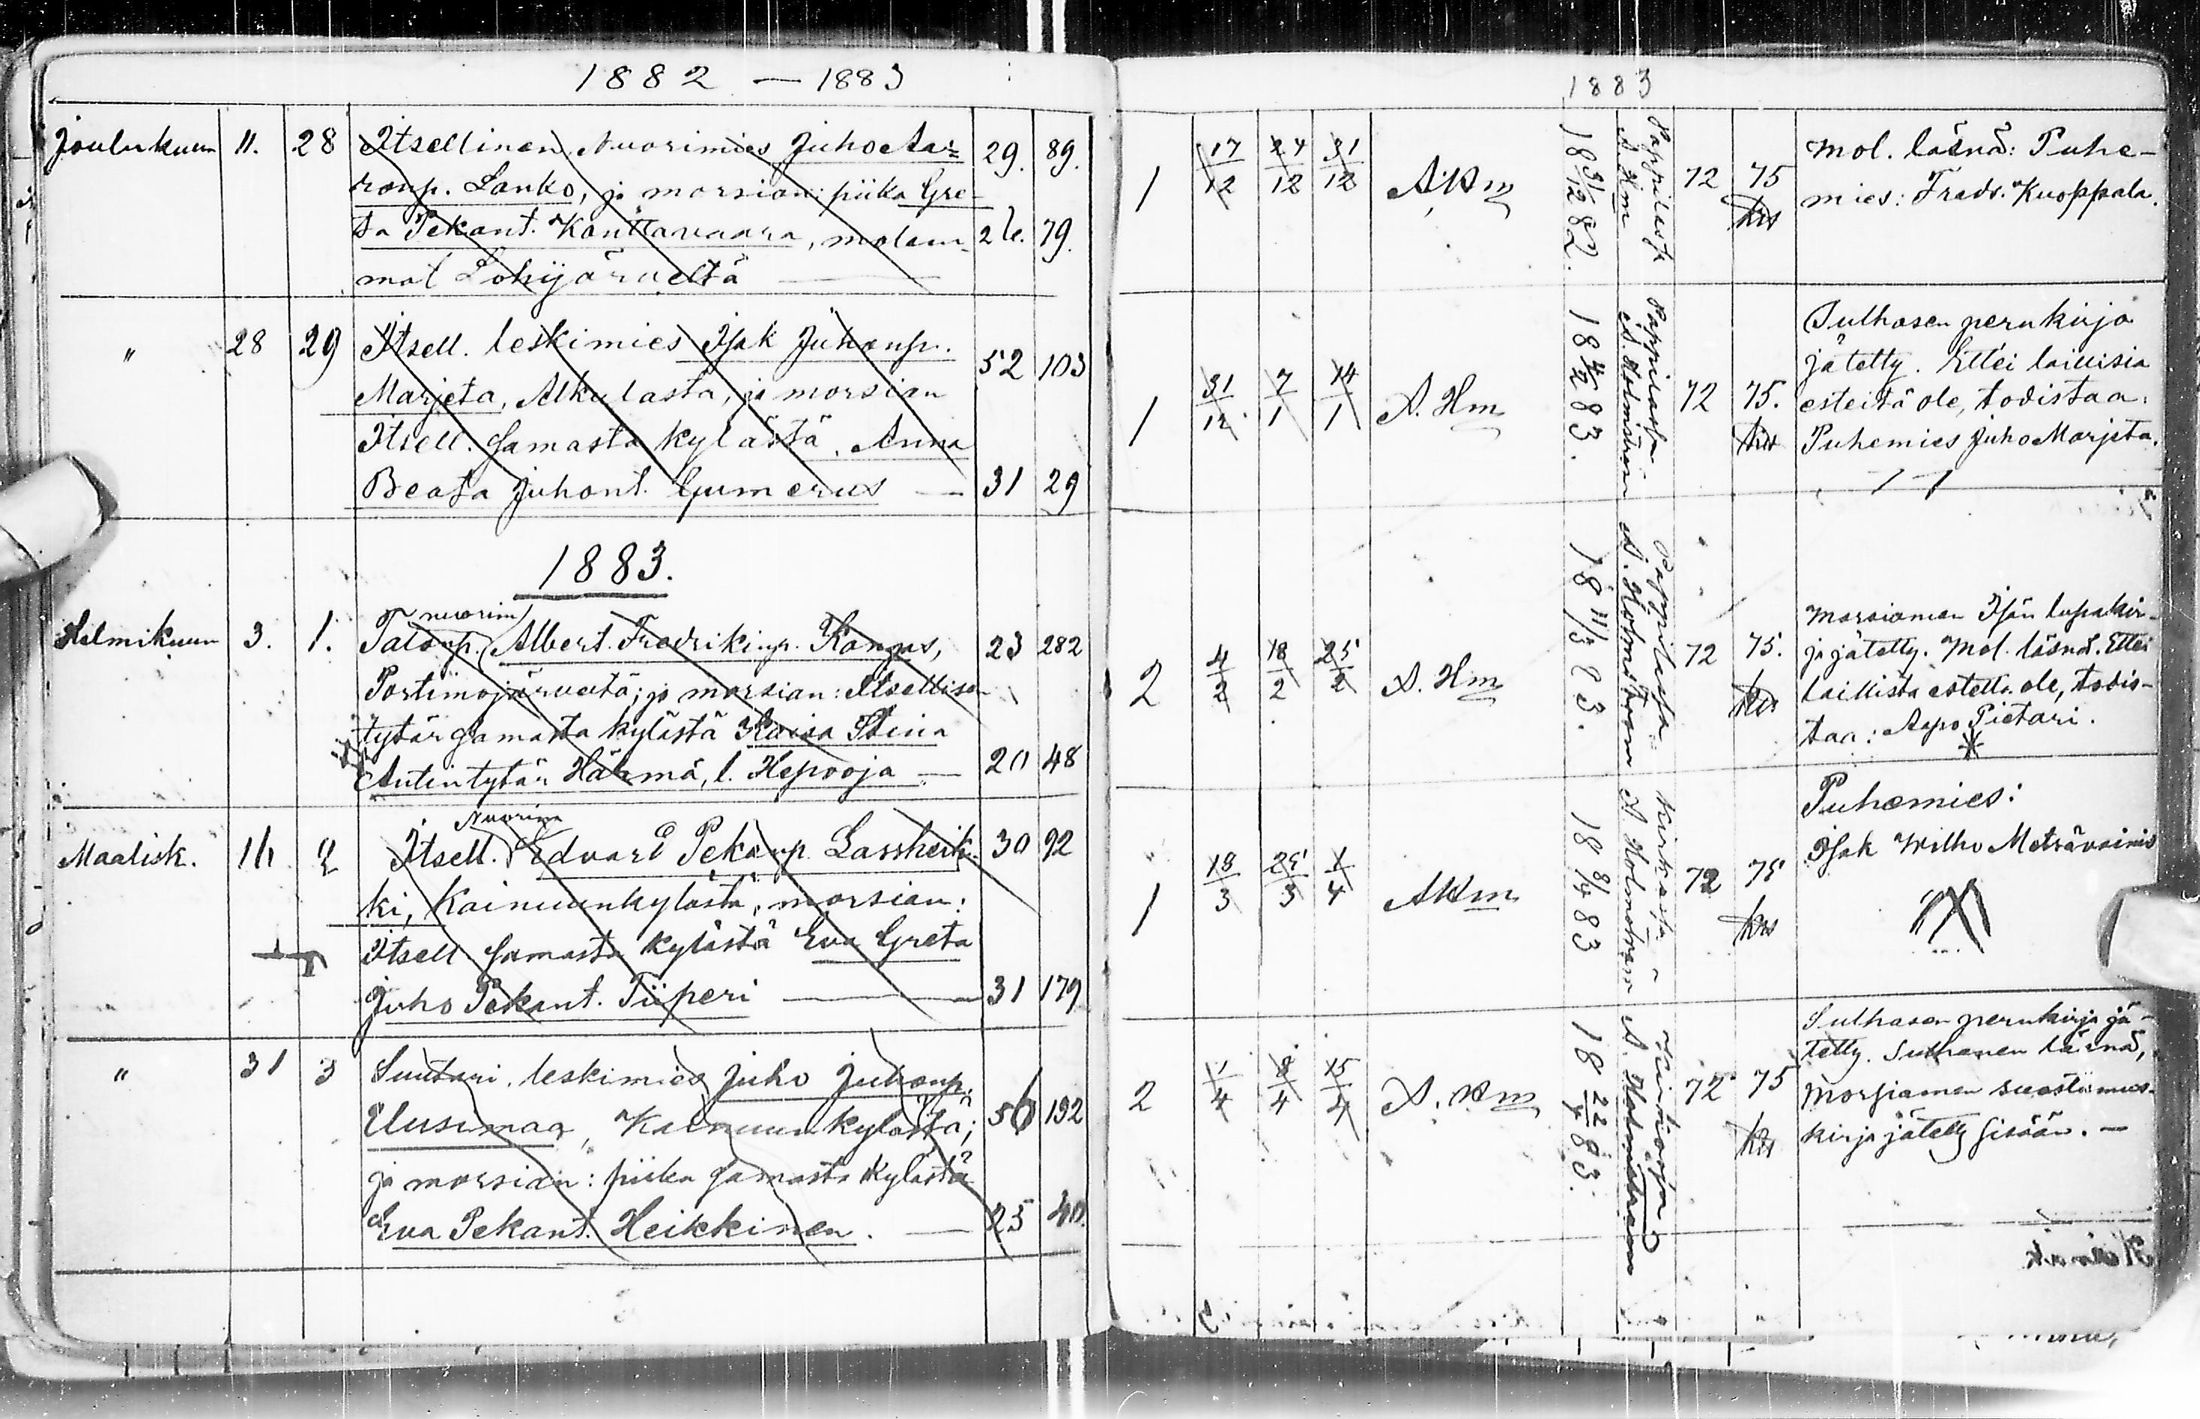 1882 — 1883
Joulukuun 11. 28 Itsellinen, Nuorimies Juho Aa-
ronp. Lanko, ja morsian: piika Gre- 29. 89.
ta Pekant. Konttavaara, molem- 26. 79.
mat Lohijärveltä —
" 28 29 Itsell. leskimies Isak Juhonp.
Marjeta, Alkulasta, ja morsian 52 103
Itsell. samasta kylästä, Anna
Beata Juhont. Gumerus — 31 29
1883.
nuorim
Helmikuun 3. 1. Talonp. Albert Fredrikinp. Kangas, 23 282
Portimojärveltä; ja morsian: Itsellisen
tytär samasta kylästä Kaisa Stina
Antintytär Härmä, l. Hepooja — 20 48
Nuorim
Maalisk. 16 2 Itsell. Edvard Pekanp. Lassheik- 30 92
ki, Kainuunkylästä, morsian:
Itsell samasta kylästä Eva Greta
Juho Pekant. Tiiperi — 31 179
" 31 3 Suutari, leskimies Juho Juhonp.
Uusimaa, Kainuunkylästä; 56 192
ja morsian: piika samasta kylästä
Eva Pekant. Heikkinen. — 25 40.
1883
1 17/12 24/12 31/12 A Hm 18 31/12 82. Pappilassa A Hm 72 75
Mol. läsnä: Puhe-
mies: Fredr. Kuoppala.
1 31/12 7/1 14/1 A. Hm 18 83. Pappilassa A. Holmström 72 75.
Sulhasen perukirja
jätetty. Ettei laillisia
esteitä ole, todistaa:
Puhemies Juho Marjeta.
2 4/2 18/2 25/2 A. Hm 18 11/3 83. Pappilassa A. Holmström 72 75.
Morsiamen Isän lupakir-
ja jätetty. Mol. läsnä. Ettei
laillista estettä ole, todis-
taa: Aapo Pietari.
1 18/3 25/3 1/4 A Hm 18 8/4 83 Kirkossa A Holmström 72 75
Puhemies:
Isak Wilho Metsävainio
2 1/4 8/4 15/4 A. Hm 18 22/4 83. A. Holmström 72 75
Sulhasen perukirja jä-
tetty. Sulhanen läsnä,
Morsiamen suostumus-
kirja jätetty sisään. —